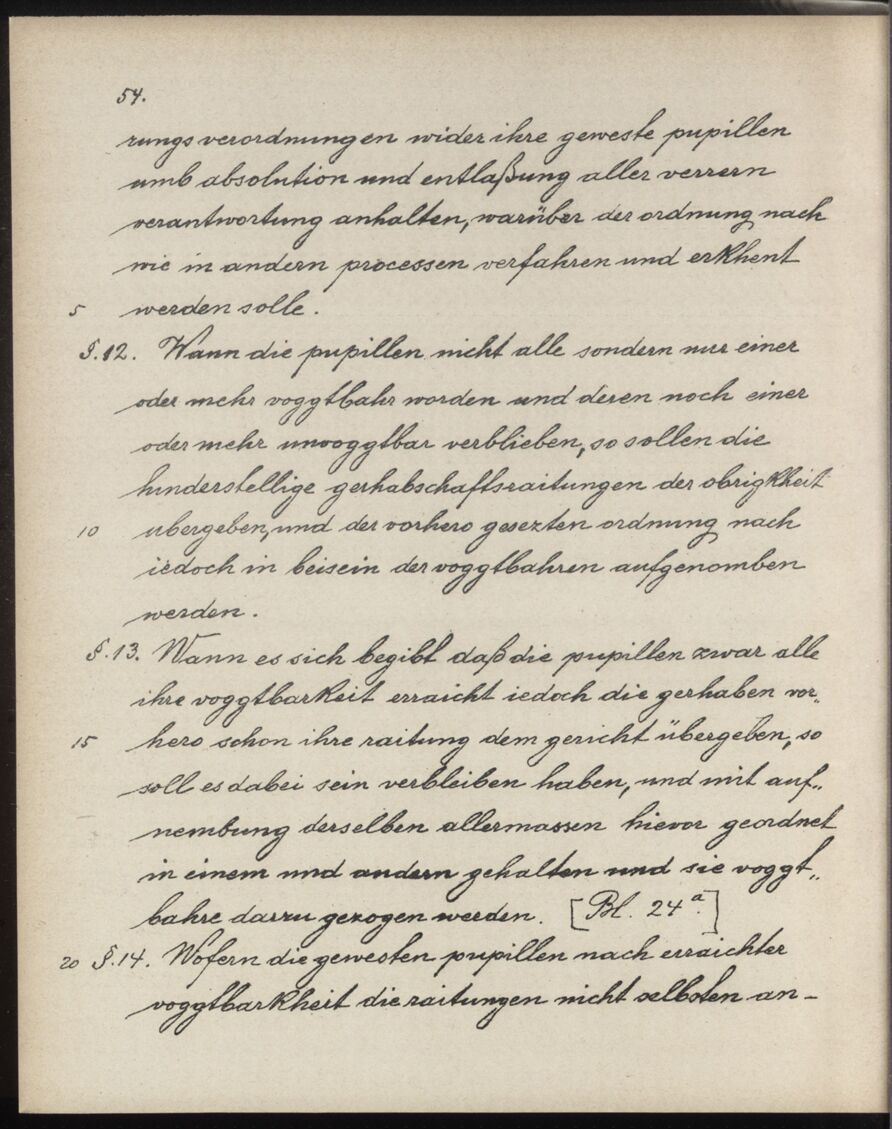 54.
rungs verordnungen wider ihre geweste pupillen
umb absolution und entlaßung aller verrern
verantwortung anhalten, warüber der ordnung nach
wie in andern processen verfahren und erkhent
5 werden solle.
§.12. Wann die pupillen nicht alle sondern nur einer
oder mehr voggtbahr worden und deren noch einer
oder mehr unvoggtbar verblieben, so sollen die
hinderstellige gerhabschaftsraitungen der obrigkheit
10 ubergeben, und der vorhero gesezten ordnung nach
iedoch in beisein der voggtbahren aufgenomben
werden.
§.13. Wann es sich begibt daß die pupillen zwar alle
ihre voggtbarkeit erraicht iedoch die gerhaben vor„
15 hero schon ihre raitung dem gericht übergeben, so
soll es dabei sein verbleiben haben, und mit auf„
nembung derselben allermassen hievor geordnet
in einem und andern gehalten und sie voggt„
bahre darzu gezogen werden. [Bl. 24a.]
20 §.14. Wofern die gewesten pupillen nach erraichter
voggtbarkheit die raitungen nicht selbsten an-